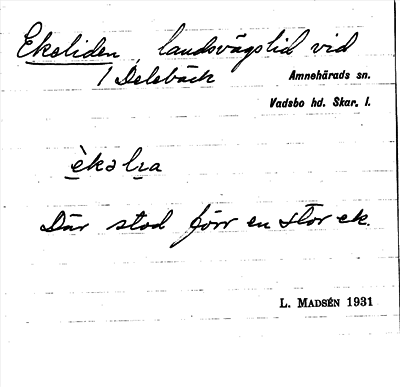 Ekeliden, landsvägslid vid
/ Delebäck
Amnehärads sn.
Vadsbo hd. Skar. l.
èkəlıa
Där stod förr en stor ek.
L. MADSÉN 1931